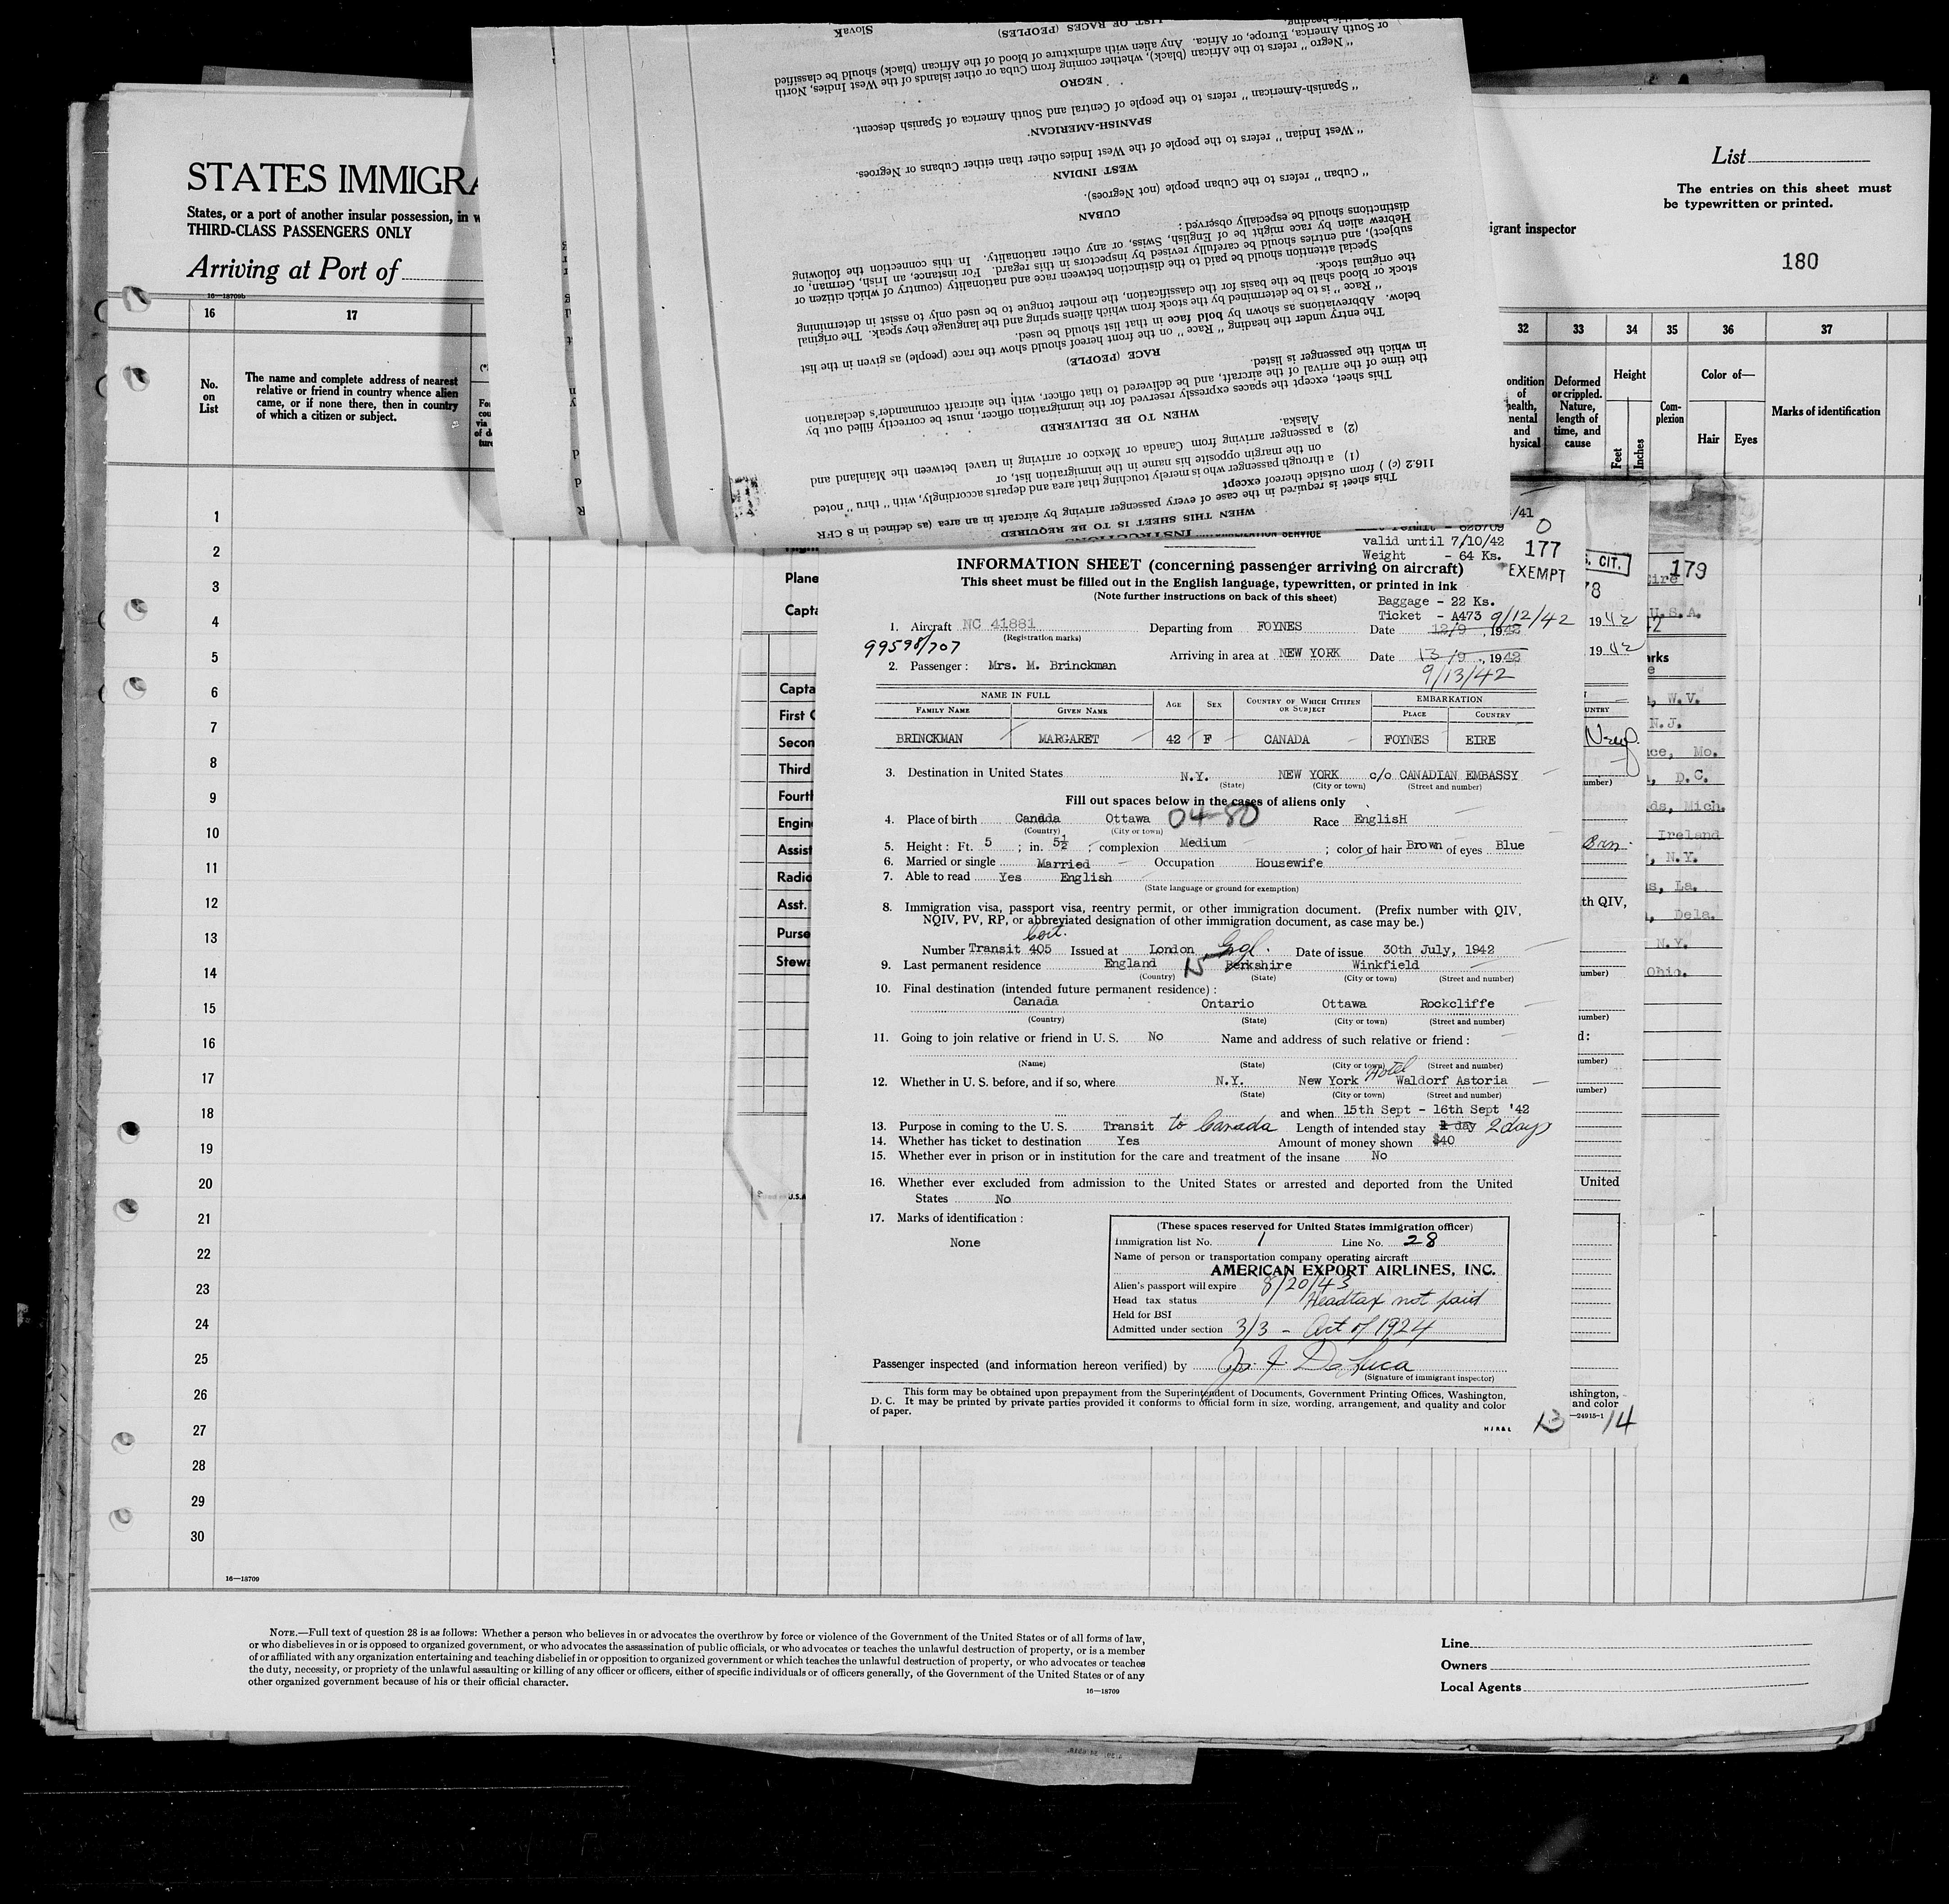 STATES IMMIGRA
States, or a port of another insular possession, in w
THIRD-CLASS PASSENGERS ONLY
Arriving at Port of
16—18709b
16 17
No. on List
The name and complete address of nearest
relative or friend in country whence alien
came, or if none there, then in country
of which a citizen or subject.
1
2
3
4
5
6
7
8
9
10
11
12
13
14
15
16
17
18
19
20
21
22
23
24
25
26
27
28
29
30
16—18709
LIST OF RACES (PEOPLES)
Slovak
or South America, Europe, or Africa. Any alien with admixture of blood of the African (black) should be classified
" Negro " refers to the African (black), whether coming from Cuba or other islands of the West Indies, North
NEGRO
" Spanish-American " refers to the people of Central and South America of Spanish descent.
SPANISH-AMERICAN
" West Indian " refers to the people of the West Indies other than either Cubans or Negroes.
WEST INDIAN
" Cuban " refers to the Cuban people (not Negroes).
CUBAN
distinctions should be especially observed:
Hebrew alien by race might be of English, Swiss, or any other nationality. In this connection the following
subject), and entries should be carefully revised by inspectors in this regard. For instance, an Irish, German, or
Special attention should be paid to the distinction between race and nationality (country of which citizen or
the original stock.
stock or blood shall be the basis for the classification, the mother tongue to be used only to assist in determining
" Race " is to be determined by the stock from which aliens spring and the language they speak. The original
below. Abbreviations as shown by bold face in that list should be used.
The entry under the heading " Race " on the front hereof should show the race (people) as given in the list
RACE (PEOPLE)
in which the passenger is listed.
the time of the arrival of the aircraft, and be delivered to that officer, with the aircraft commander's declaration
This sheet, except the spaces expressly reserved for the immigration officer, must be correctly filled out by
WHEN TO BE DELIVERED
Alaska.
(2) a passenger arriving from Canada or Mexico or arriving in travel between the Mainland and
on the margin opposite his name in the immigration list, or
(1) a through passenger who is merely touching that area and departs accordingly, with " thru " noted
116.2 (c) ) from outside thereof except
This sheet is required in the case of every passenger arriving by aircraft in an area (as defined in 8 CFR
WHEN THIS SHEET IS TO BE REQUIRED
INSTRUCTIONS
List
The entries on this sheet must
be typewritten or printed.
igrant inspector
180
32 33 34 35 36 37
ondition of health, mental and hysical
Deformed or crippled. Nature, length of time, and cause
Height
Feet Inches
Com-plexion
Color of—
Hair Eyes
Marks of identification
/41
0
valid until 7/10/42
Weight - 64 Ks.
177
EXEMPT
INFORMATION SHEET (concerning passenger arriving on aircraft)
This sheet must be filled out in the English language, typewritten, or printed in ink
(Note further instructions on back of this sheet)
Baggage - 22 Ks.
Ticket - A473 9/12/42
1. Aircraft NC 41881 Departing from FOYNES Date 12/9, 1942
(Registration marks)
99598/707
Arriving in area at NEW YORK Date 13/9, 1942
2. Passenger: Mrs. M. Brinckman
9/13/42
NAME IN FULL AGE SEX COUNTRY OF WHICH CITIZEN OR SUBJECT EMBARKATION
FAMILY NAME GIVEN NAME PLACE COUNTRY
BRINCKMAN MARGARET 42 F CANADA FOYNES EIRE
3. Destination in United States N.Y. NEW YORK c/o CANADIAN EMBASSY
(State) (City or town) (Street and number)
Fill out spaces below in the cases of aliens only
4. Place of birth Canada Ottawa 04-80 Race EnglisH
(Country) (City or town)
5. Height: Ft. 5; in. 5½; complexion Medium; color of hair Brown of eyes Blue
6. Married or single Married Occupation Housewife
7. Able to read Yes English
(State language or ground for exemption)
8. Immigration visa, passport visa, reentry permit, or other immigration document. (Prefix number with QIV,
NQIV, PV, RP, or abbreviated designation of other immigration document, as case may be.)
Cert.
Number Transit 405 Issued at London Engl. Date of issue 30th July, 1942
9. Last permanent residence England 15 Berkshire Winkfield
(Country) (State) (City or town) (Street and number)
10. Final destination (intended future permanent residence):
Canada Ontario Ottawa Rockcliffe
(Country) (State) (City or town) (Street and number)
11. Going to join relative or friend in U. S. No Name and address of such relative or friend:
(Name) (State) (City or town) (Street and number)
12. Whether in U. S. before, and if so, where N.Y. New York Hotel Waldorf Astoria
(State) (City or town) (Street and number)
and when 15th Sept - 16th Sept '42
13. Purpose in coming to the U. S. Transit to Canada Length of intended stay 1 day 2 days
14. Whether has ticket to destination Yes Amount of money shown $40
15. Whether ever in prison or in institution for the care and treatment of the insane No
16. Whether ever excluded from admission to the United States or arrested and deported from the United
States No
17. Marks of identification:
None
(These spaces reserved for United States immigration officer)
Immigration list No. 1 Line No. 28
Name of person or transportation company operating aircraft
AMERICAN EXPORT AIRLINES, INC.
Alien's passport will expire 8/20/43
Head tax status Headtax not paid
Held for BSI
Admitted under section 3/3 - Act of 1924
Passenger inspected (and information hereon verified) by Jo. F. DeLuca
(Signature of immigrant inspector)
This form may be obtained upon prepayment from the Superintendent of Documents, Government Printing Offices, Washington,
D. C. It may be printed by private parties provided it conforms to official form in size, wording, arrangement, and quality and color
of paper.
13
14
Plane
Capta
Capta
First
Secon
Third
Fourth
Engin
Assist
Radio
Asst.
Purse
Stewa
U.S.A
S. CIT.
179
U.S.A.
1942
1942
arks
W.V.
N.J.
Mo.
D.C.
ds, Mich.
Ireland
N.Y.
s, La.
Dela.
N.Y.
Ohio.
th QIV,
United
ashington,
and color
—24915-1
NOTE.—Full text of question 28 is as follows: Whether a person who believes in or advocates the overthrow by force or violence of the Government of the United States or of all forms of law,
or who disbelieves in or is opposed to organized government, or who advocates the assassination of public officials, or who advocates or teaches the unlawful destruction of property, or is a member
of or affiliated with any organization entertaining and teaching disbelief in or opposition to organized government or which teaches the unlawful destruction of property, or who advocates or teaches
the duty, necessity, or propriety of the unlawful assaulting or killing of any officer or officers, either of specific individuals or of officers generally, of the Government of the United States or of any
other organized government because of his or their official character.
16—18709
Line
Owners
Local Agents